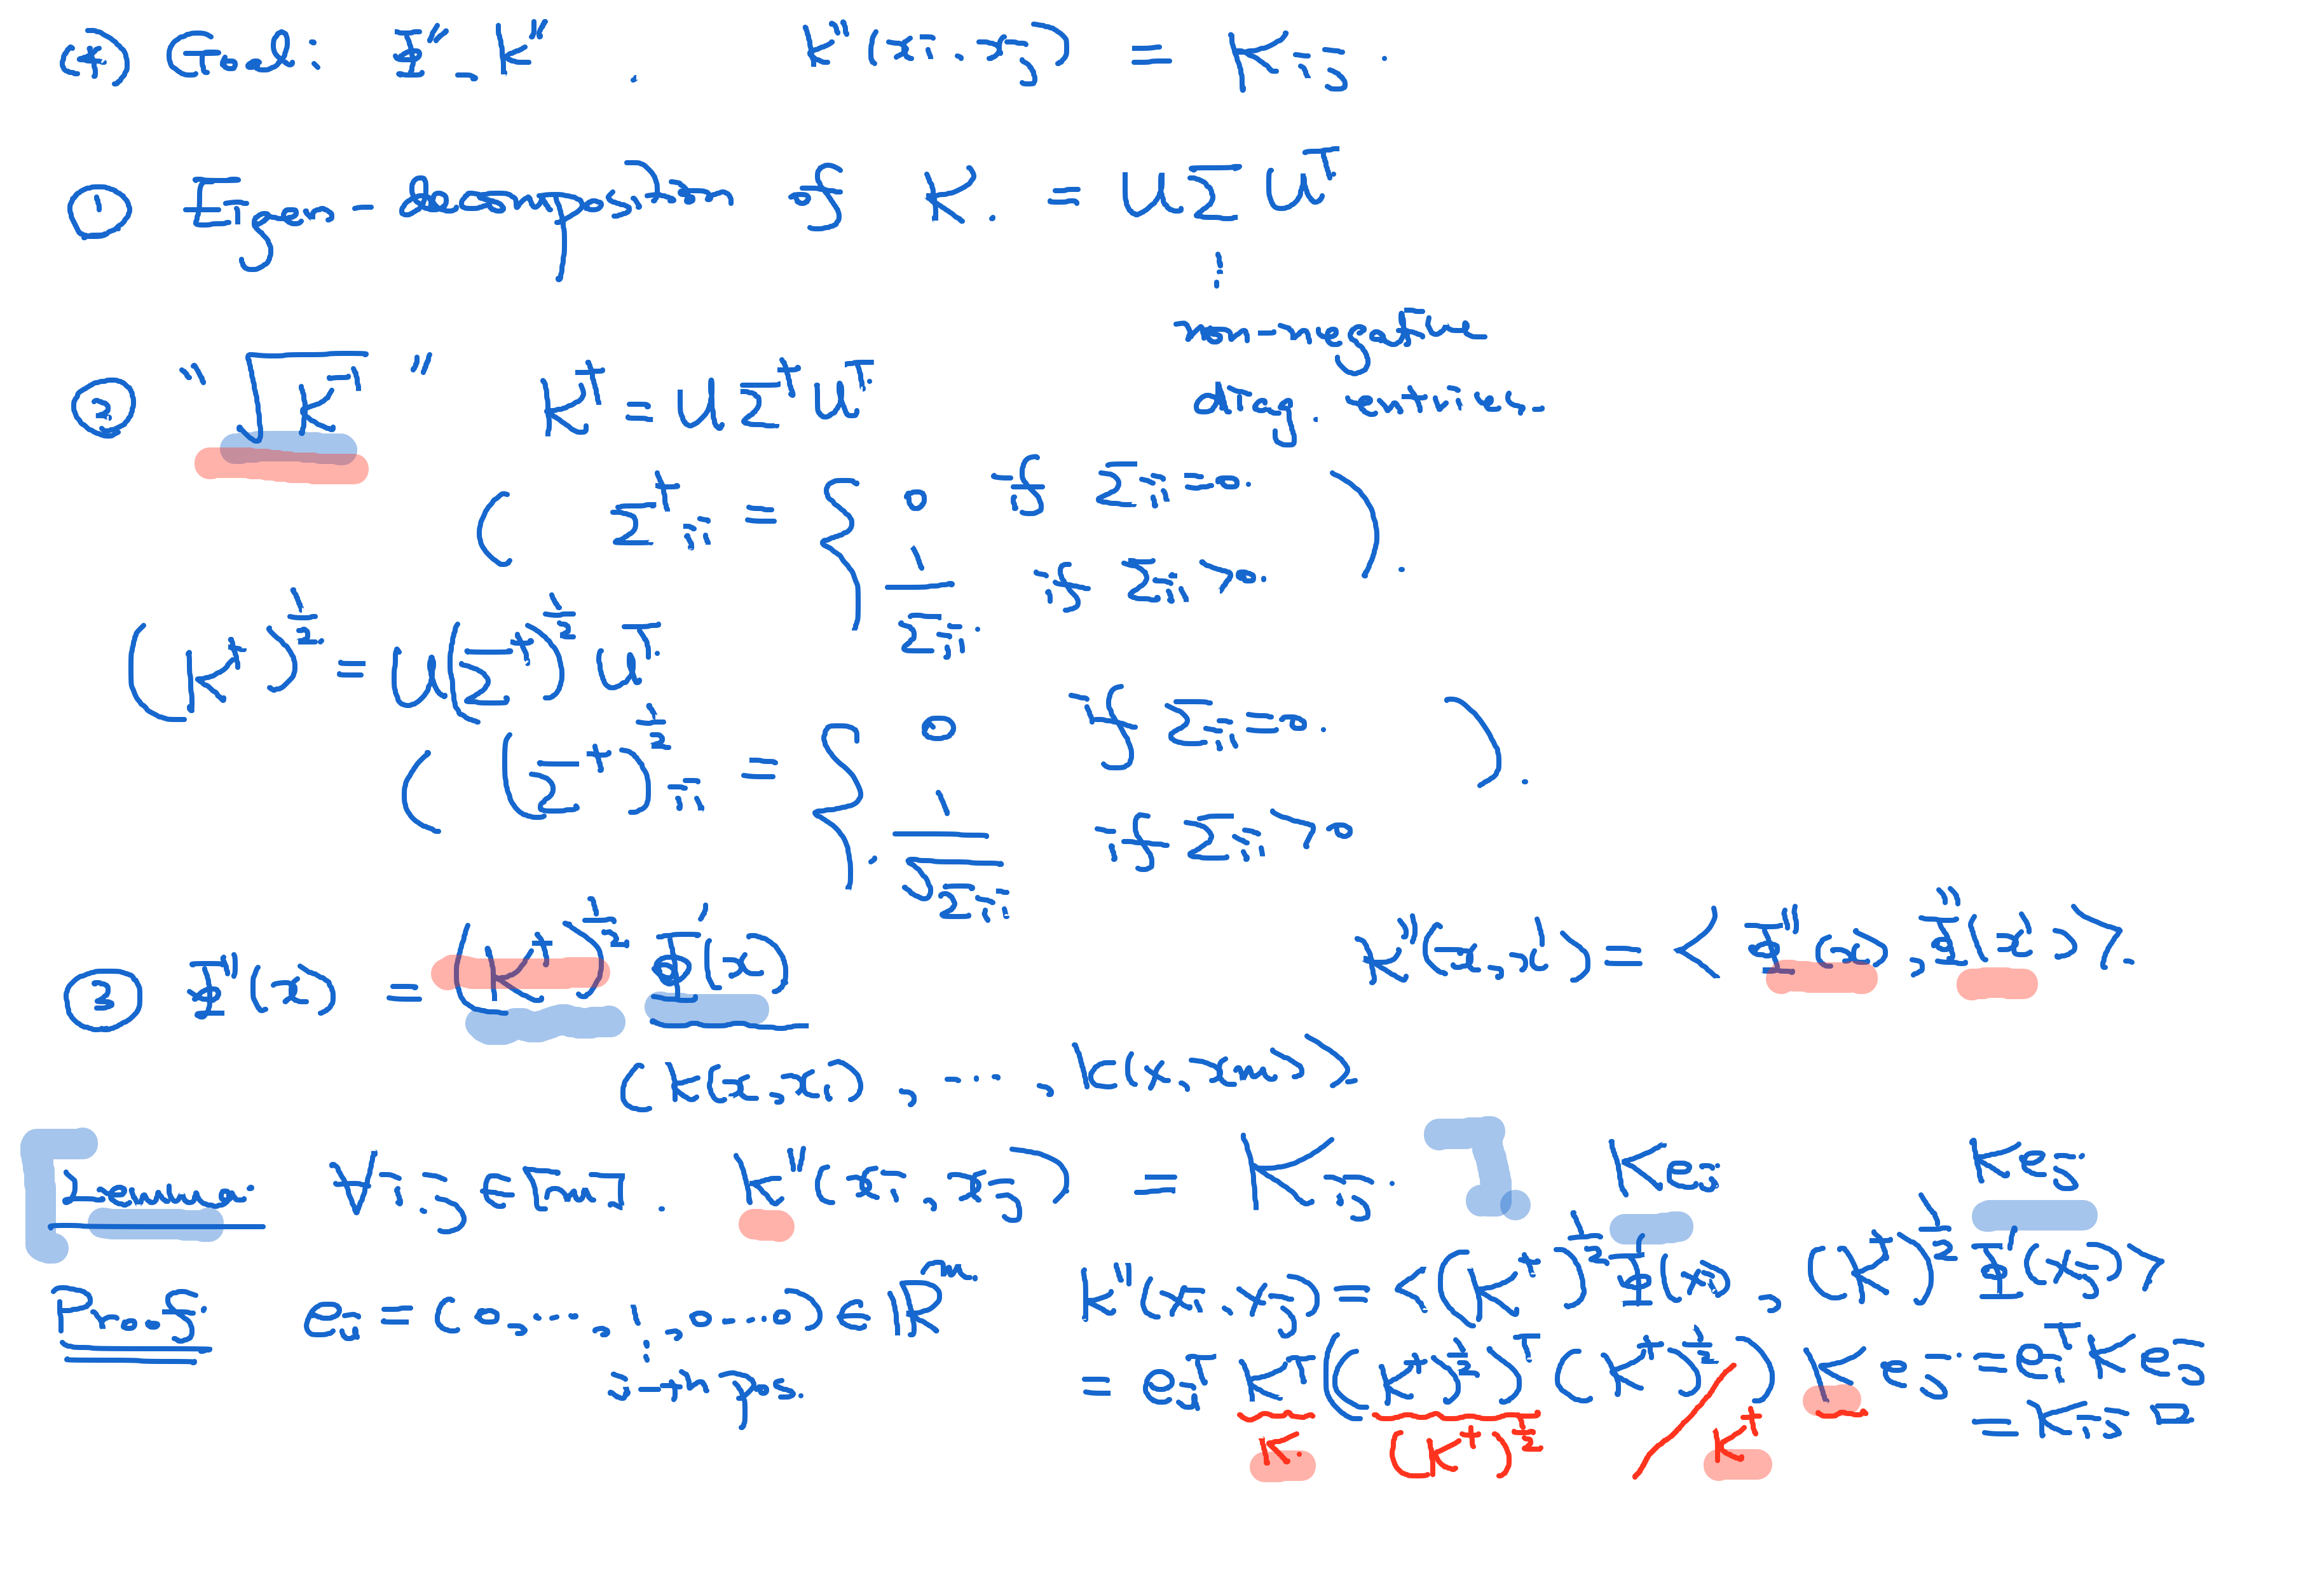 d) Goal: Φ'', K''. K''(xi, xj) = Kij.
① Eigen-decomposition of K. = UΣU^T
non-negative
diag. entries.
② "√K†" K† = UΣ†U^T.
( Σ†ii = { 0 if Σii=0.
1/Σii. if Σii>0. ).
(K†)^½ = U(Σ†)^½ U^T.
( (Σ†)^½ii = { 0 if Σii=0.
1/√Σii if Σii>0 ).
③ Φ''(x) = (K†)^½ Φ'(x) K''(x,x') = <Φ''(x), Φ''(x')>.
(K(x,x1), ..., K(x,xm))
Lemma. ∀i,j∈[m]. K''(xi, xj) = Kij.
Kei Kej
Proof. ei = (0..., 1, 0...0) ∈ R^m. K''(xi, xj) = <(K†)^½ Φ'(xi), (K†)^½ Φ'(xj)>
i-th pos. = ei^T K^T (((K†)^½)^T (K†)^½) K ej = ei^T K ej
K (K†)^½ K† = Kij □